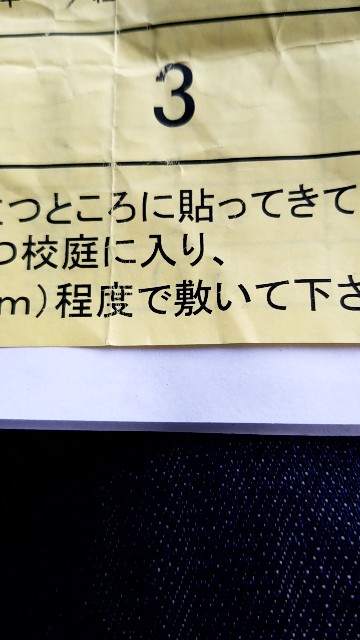 3
つところに貼ってきて
つ校庭に入り、
m）程度で敷いて下さ